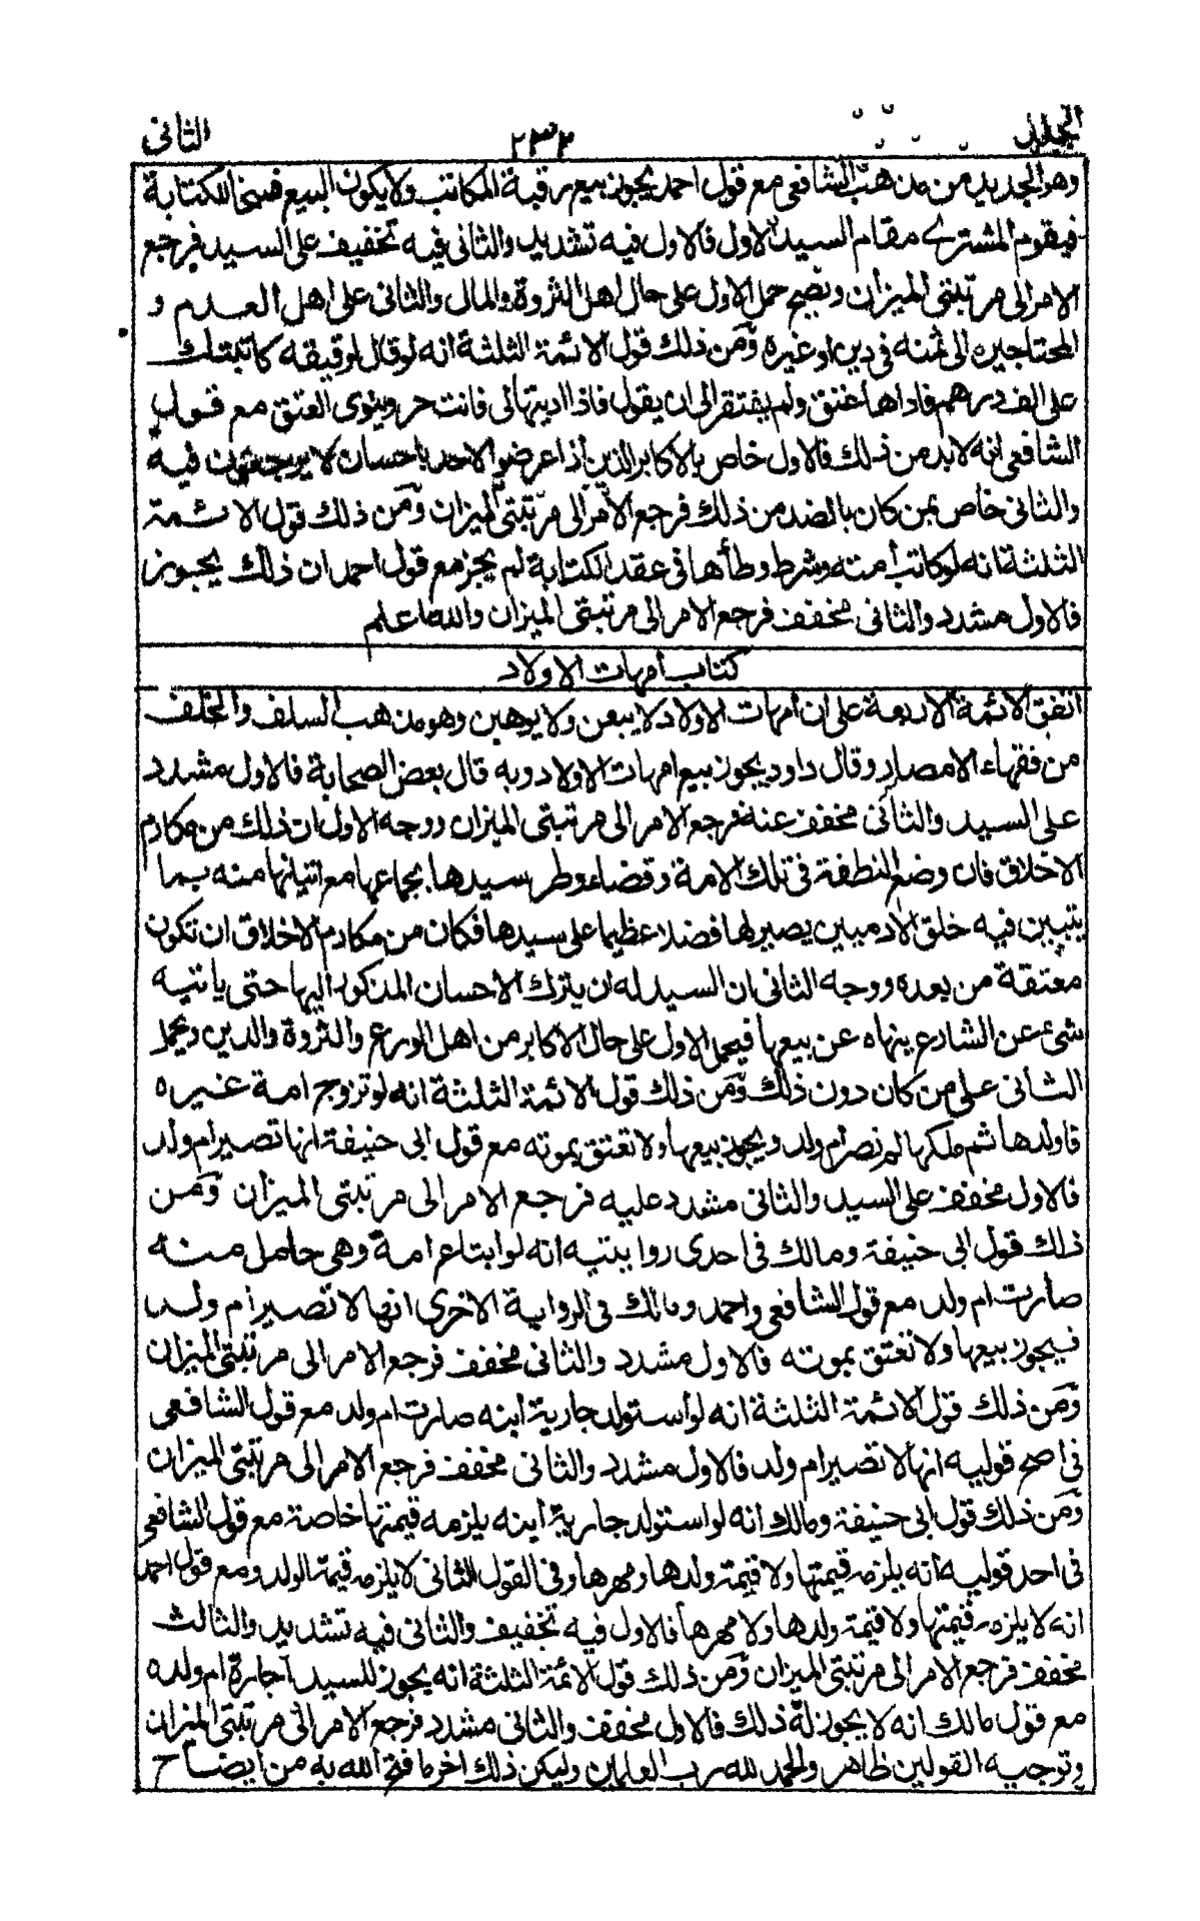 الجلد ٢٣٢ الثانى
وهو الجديد من مذهب الشافعى مع قول احمد يجوز بيع رقبة المكاتب ولا يكون البيع فسخا للكتابة
فيقوم المشترى مقام السيد الاول فالاول فيه تشديد والثانى فيه تخفيف على السيد فرجع
الامر الى مرتبتى الميزان ويصح حمل الاول على حال اهل الثروة والمال والثانى على اهل العدم و
المحتاجين الى ثمنه فى دين او غيره ومن ذلك قول الائمة الثلثة انه لو قال لرقيقه كاتبتك
على الف درهم فاداها عتق ولم يفتقر الى ان يقول فاذا اديتها الى فانت حر وينوى العتق مع قول
الشافعى انه لابد من ذلك فالاول خاص بالاكابر الذين اذا عرضوا لاحد باحسان لا يرجعون فيه
والثانى خاص بمن كان بالضد من ذلك فرجع الامر الى مرتبتى الميزان ومن ذلك قول الائمة
الثلثة انه لو كاتب امته وشرط وطأها فى عقد الكتابة لم يجز مع قول احمد ان ذلك يجوز
فالاول مشدد والثانى مخفف فرجع الامر الى مرتبتى الميزان والله اعلم
كتاب امهات الاولاد
اتفق الائمة الاربعة على ان امهات الاولاد لا يبعن ولا يوهبن وهو مذهب السلف والخلف
من فقهاء الامصار وقال داود يجوز بيع امهات الاولاد وبه قال بعض الصحابة فالاول مشدد
على السيد والثانى مخفف عنه فرجع الامر الى مرتبتى الميزان ووجه الاول ان ذلك من مكارم
الاخلاق فان وضع النطفة فى تلك الامة وقضاء وطر سيدها بجماعها مع اتيانها منه بما
يتبين فيه خلق الآدميين يصير لها فضلا عظيما على سيدها فكان من مكارم الاخلاق ان تكون
معتقة من بعده ووجه الثانى ان السيد له ان يترك الاحسان المذكور اليها حتى ياتيه
شئ عن الشارع ينهاه عن بيعها فيحمل الاول على حال الاكابر من اهل الورع والثروة والدين ويحمل
الثانى على من كان دون ذلك ومن ذلك قول الائمة الثلثة انه لو تزوج امة غيره
فاولدها ثم ملكها لم تصر ام ولد ويجوز بيعها ولا تعتق بموته مع قول ابى حنيفة انها تصير ام ولد
فالاول مخفف على السيد والثانى مشدد عليه فرجع الامر الى مرتبتى الميزان ومن
ذلك قول ابى حنيفة ومالك فى احدى روايتيه انه لو ابتاع امة وهى حامل منه
صارت ام ولد مع قول الشافعى واحمد ومالك فى الرواية الاخرى انها لا تصير ام ولد
فيجوز بيعها ولا تعتق بموته فالاول مشدد والثانى مخفف فرجع الامر الى مرتبتى الميزان
ومن ذلك قول الائمة الثلثة انه لو استولد جارية ابنه صارت ام ولد مع قول الشافعى
فى اصح قوليه انها لا تصير ام ولد فالاول مشدد والثانى مخفف فرجع الامر الى مرتبتى الميزان
ومن ذلك قول ابى حنيفة ومالك انه لو استولد جارية ابنه يلزمه قيمتها خاصة مع قول الشافعى
فى احد قوليه انه يلزمه قيمتها ولا قيمة ولدها ومهرها وفى القول الثانى لا يلزمه قيمة الولد ومع قول احمد
انه لا يلزمه قيمتها ولا قيمة ولدها ولا مهرها فالاول فيه تخفيف والثانى فيه تشديد والثالث
مخفف فرجع الامر الى مرتبتى الميزان ومن ذلك قول الائمة الثلثة انه يجوز للسيد اجارة ام ولده
مع قول مالك انه لا يجوز له ذلك فالاول مخفف والثانى مشدد فرجع الامر الى مرتبتى الميزان
وتوجيه القولين ظاهر والحمد لله رب العلمين وليكن ذلك اخر ما فتح الله به من ايضاح